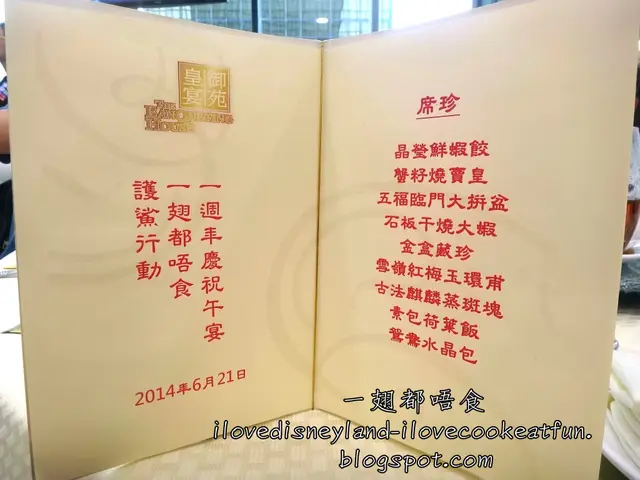 御苑
皇宴
THE
BANQUETING
HOUSE
一週年慶祝午宴
一翅都唔食
護鯊行動
2014年6月21日
席珍
晶瑩鮮蝦餃
蟹籽燒賣皇
五福臨門大拼盆
石板干燒大蝦
金盒藏珍
雪嶺紅梅玉環甫
古法麒麟蒸斑塊
素包荷葉飯
鴛鴦水晶包
一翅都唔食
ilovedisneyland-ilovecookeatfun.
blogspot.com